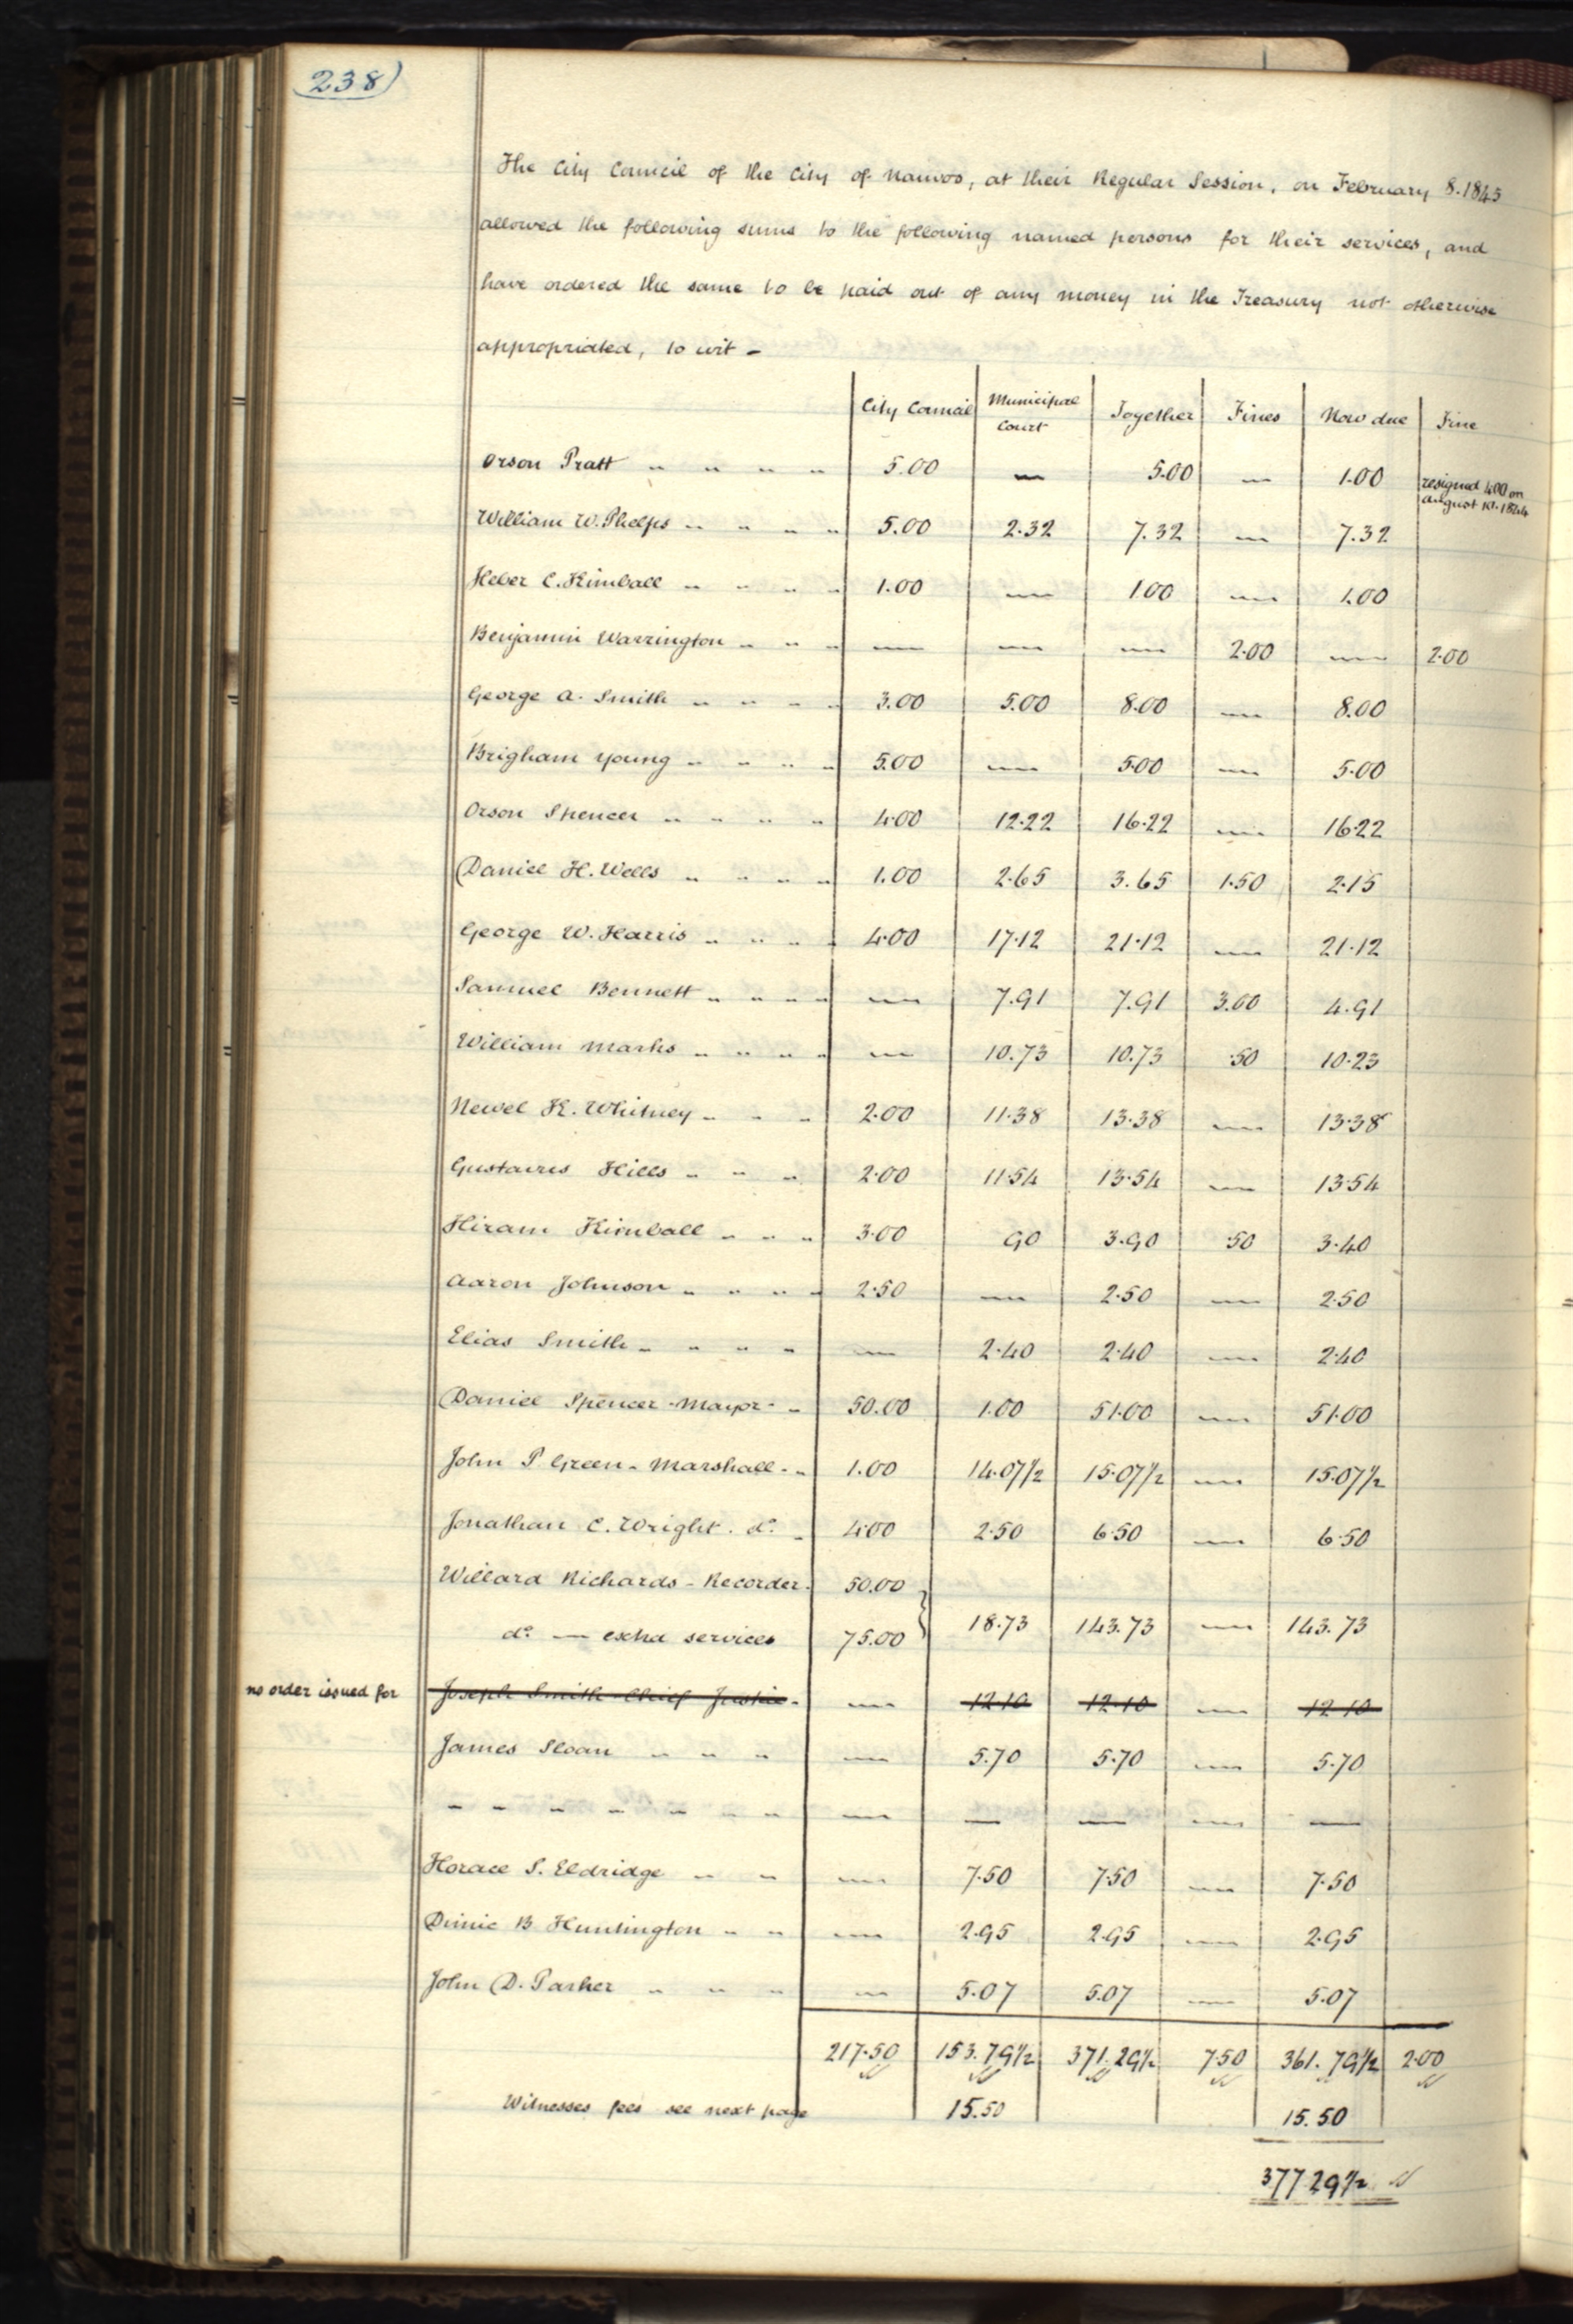 238)
The City Council of the City of Nauvoo, at their Regular Session, on February 8.1845
allowed the following sums to the following named persons for their services, and
have ordered the same to be paid out of any money in the Treasury not otherwise
appropriated, to wit -
City Council Municipal Court Together Fines Now due Fine
Orson Pratt " " " " 5.00 — 5.00 — 1.00 resigned 4.00 on August 10.1844
William W. Phelps " " " " 5.00 2.32 7.32 — 7.32
Heber C. Kimball " " " " 1.00 — 1.00 — 1.00
Benjamin Warrington " " " — — — 2.00 — 2.00
George A. Smith " " " " 3.00 5.00 8.00 — 8.00
Brigham Young " " " " 5.00 — 5.00 — 5.00
Orson Spencer " " " " 4.00 12.22 16.22 — 16.22
Daniel H. Wells " " " " 1.00 2.65 3.65 1.50 2.15
George W. Harris " " " " 4.00 17.12 21.12 — 21.12
Samuel Bennett " " " " — 7.91 7.91 3.00 4.91
William Marks " " " " — 10.73 10.73 .50 10.23
Newel K. Whitney " " " 2.00 11.38 13.38 — 13.38
Gustavus Hills " " " 2.00 11.54 13.54 — 13.54
Hiram Kimball " " " 3.00 90 3.90 .50 3.40
Aaron Johnson " " " " 2.50 — 2.50 — 2.50
Elias Smith " " " " — 2.40 2.40 — 2.40
Daniel Spencer - Mayor - " 50.00 1.00 51.00 — 51.00
John P Green - Marshall - " 1.00 14.07½ 15.07½ — 15.07½
Jonathan C. Wright. do. " 4.00 2.50 6.50 — 6.50
Willard Richards - Recorder. 50.00
do — extra services 75.00 18.73 143.73 — 143.73
no order issued for Joseph Smith Chief Justice - — 12.10 12.10 — 12.10
James Sloan " " " — 5.70 5.70 — 5.70
- - - - - - - — — — — —
Horace S. Eldridge " " — 7.50 7.50 — 7.50
Dimic B Huntington " " — 2.95 2.95 — 2.95
John D. Parker " " " — 5.07 5.07 — 5.07
217.50 153.79½ 371.29½ 7.50 361.79½ 2.00
Witnesses fees see next page 15.50 15.50
377 29½